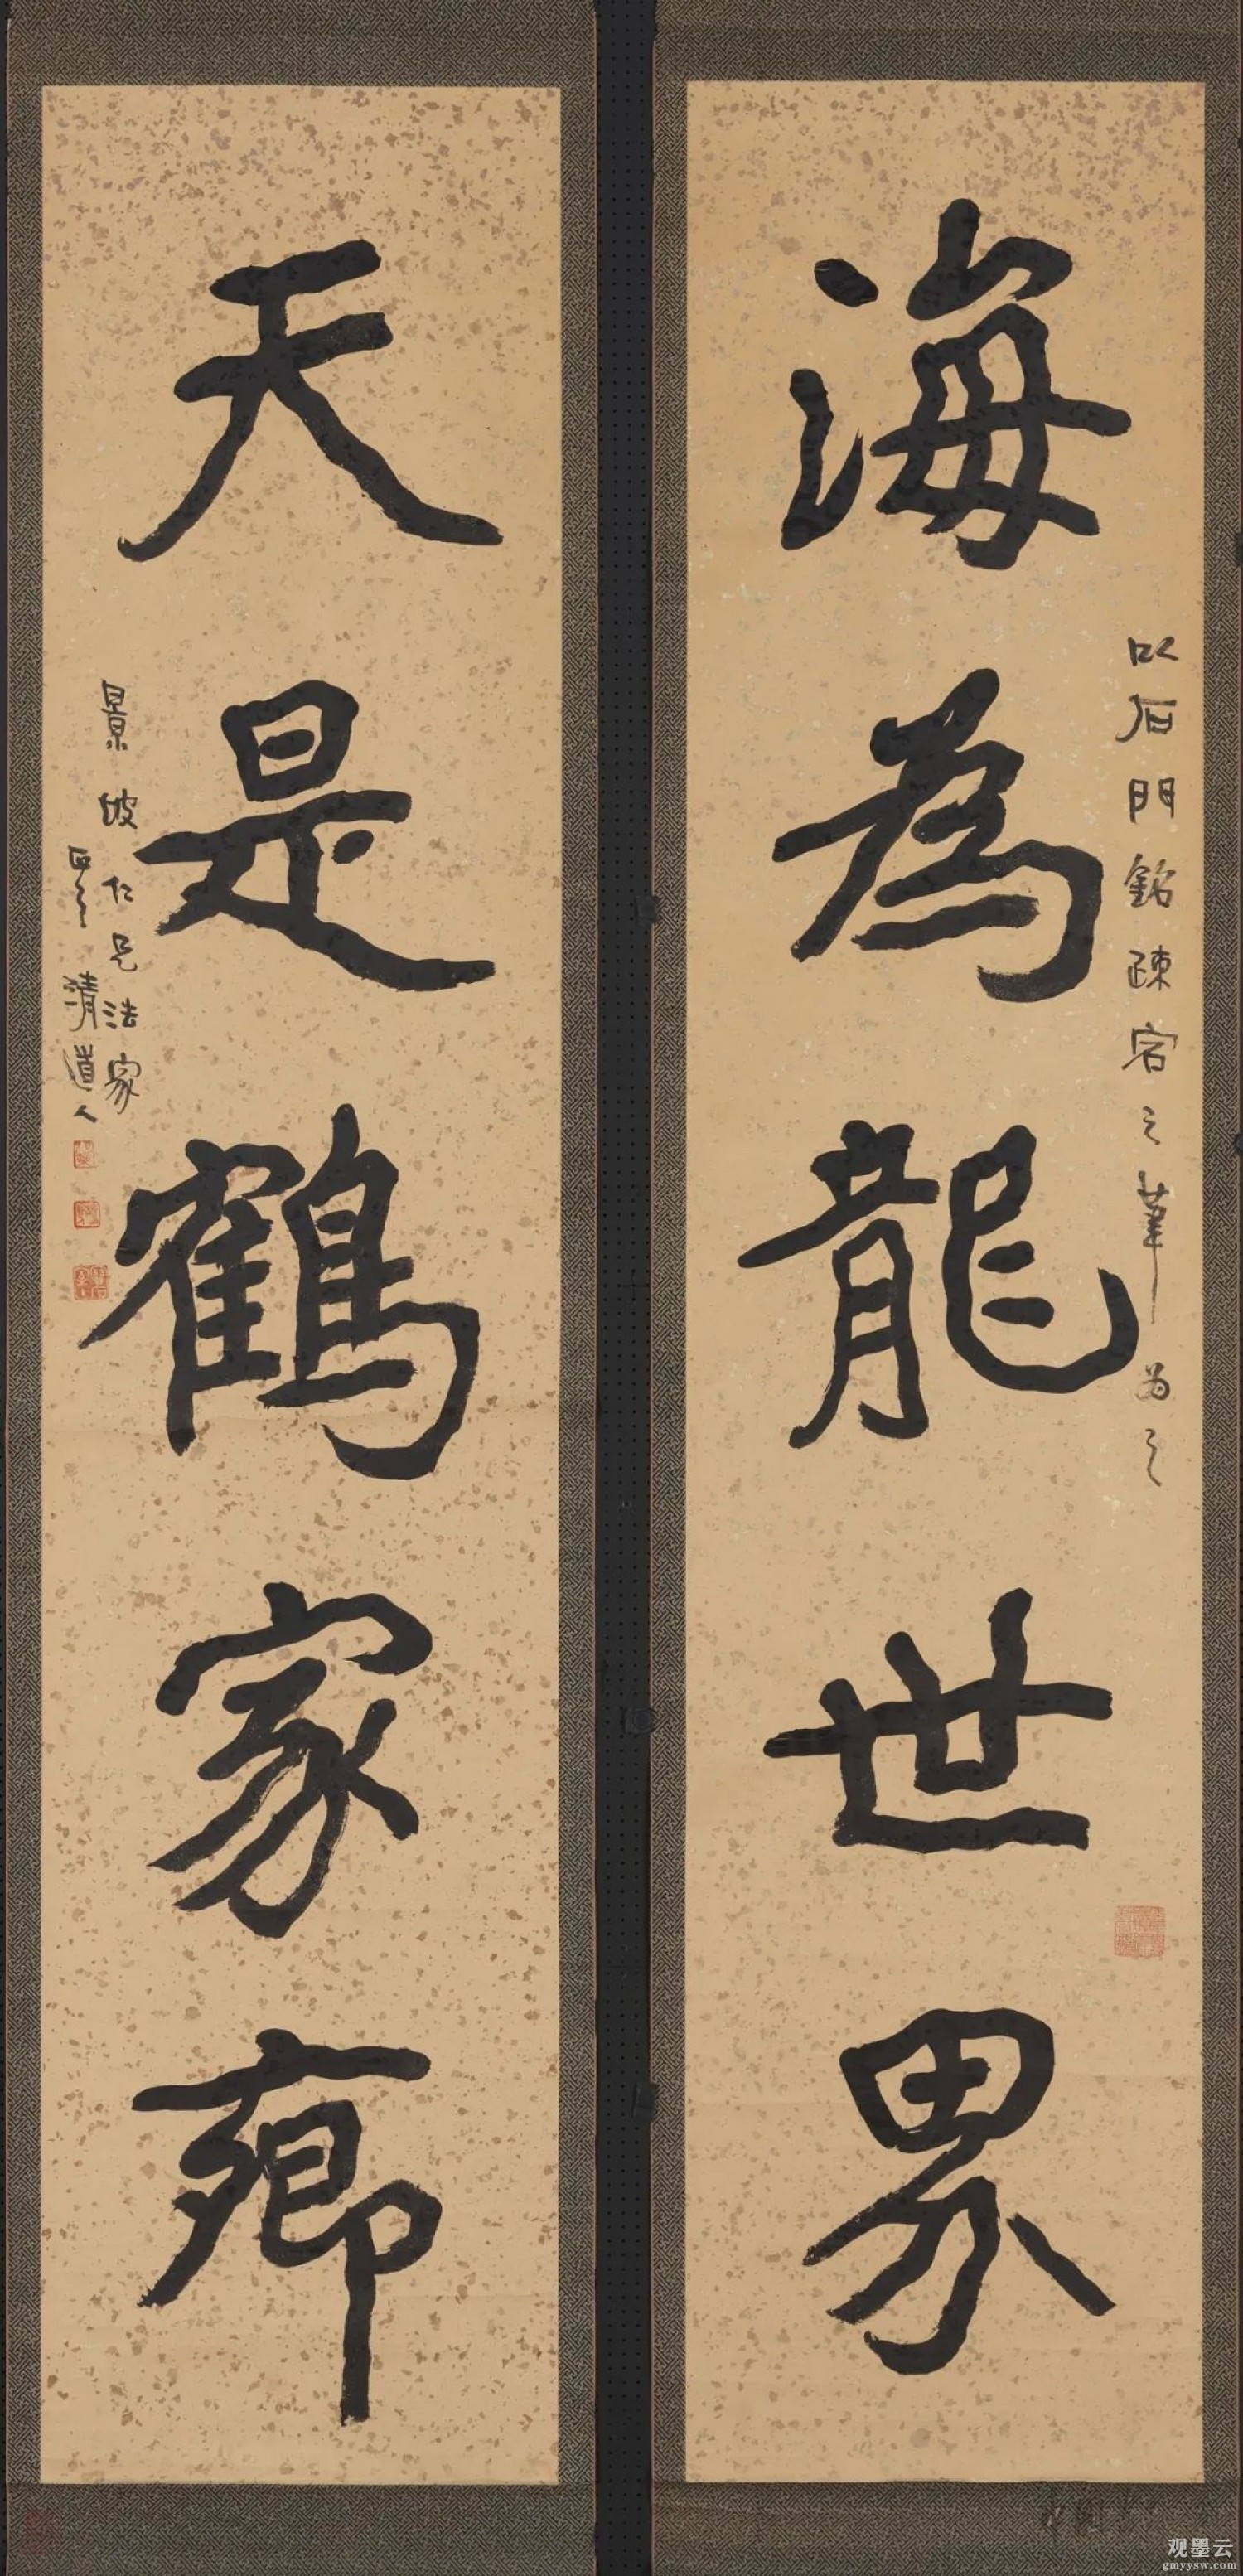 海為龍世界
以石門銘疎宕之筆為之
天是鶴家鄉
景坡仁兄法家
正之 清道人
观墨云
gmyysw.com